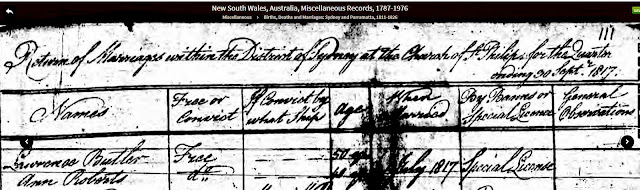 New South Wales, Australia, Miscellaneous Records, 1787-1976
Miscellaneous > Births, Deaths and Marriages: Sydney and Parramatta, 1811-1826
111
Return of Marriages within the District of Sydney at the Church of St. Philips for the Quarter
ending 30 Sept.r 1817.
Names Free or Convict If Convict by what Ship Age When Married By Banns or Special Licence General Observations
Lawrence Butler Free 50 July 1817 Special License
Ann Roberts